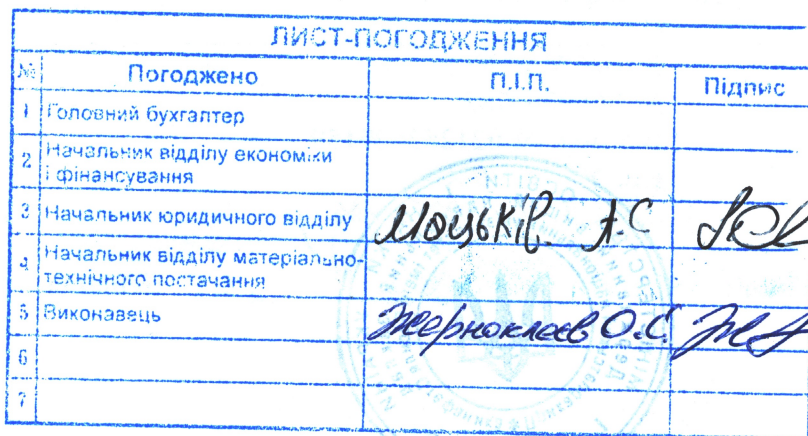 ЛИСТ-ПОГОДЖЕННЯ
№ Погоджено П.І.П. Підпис
1 Головний бухгалтер
2 Начальник відділу економіки
і фінансування
3 Начальник юридичного відділу Моцьків. А.С
4 Начальник відділу матеріально-
технічного постачання
5 Виконавець Жерноклеєв О.С.
6
7